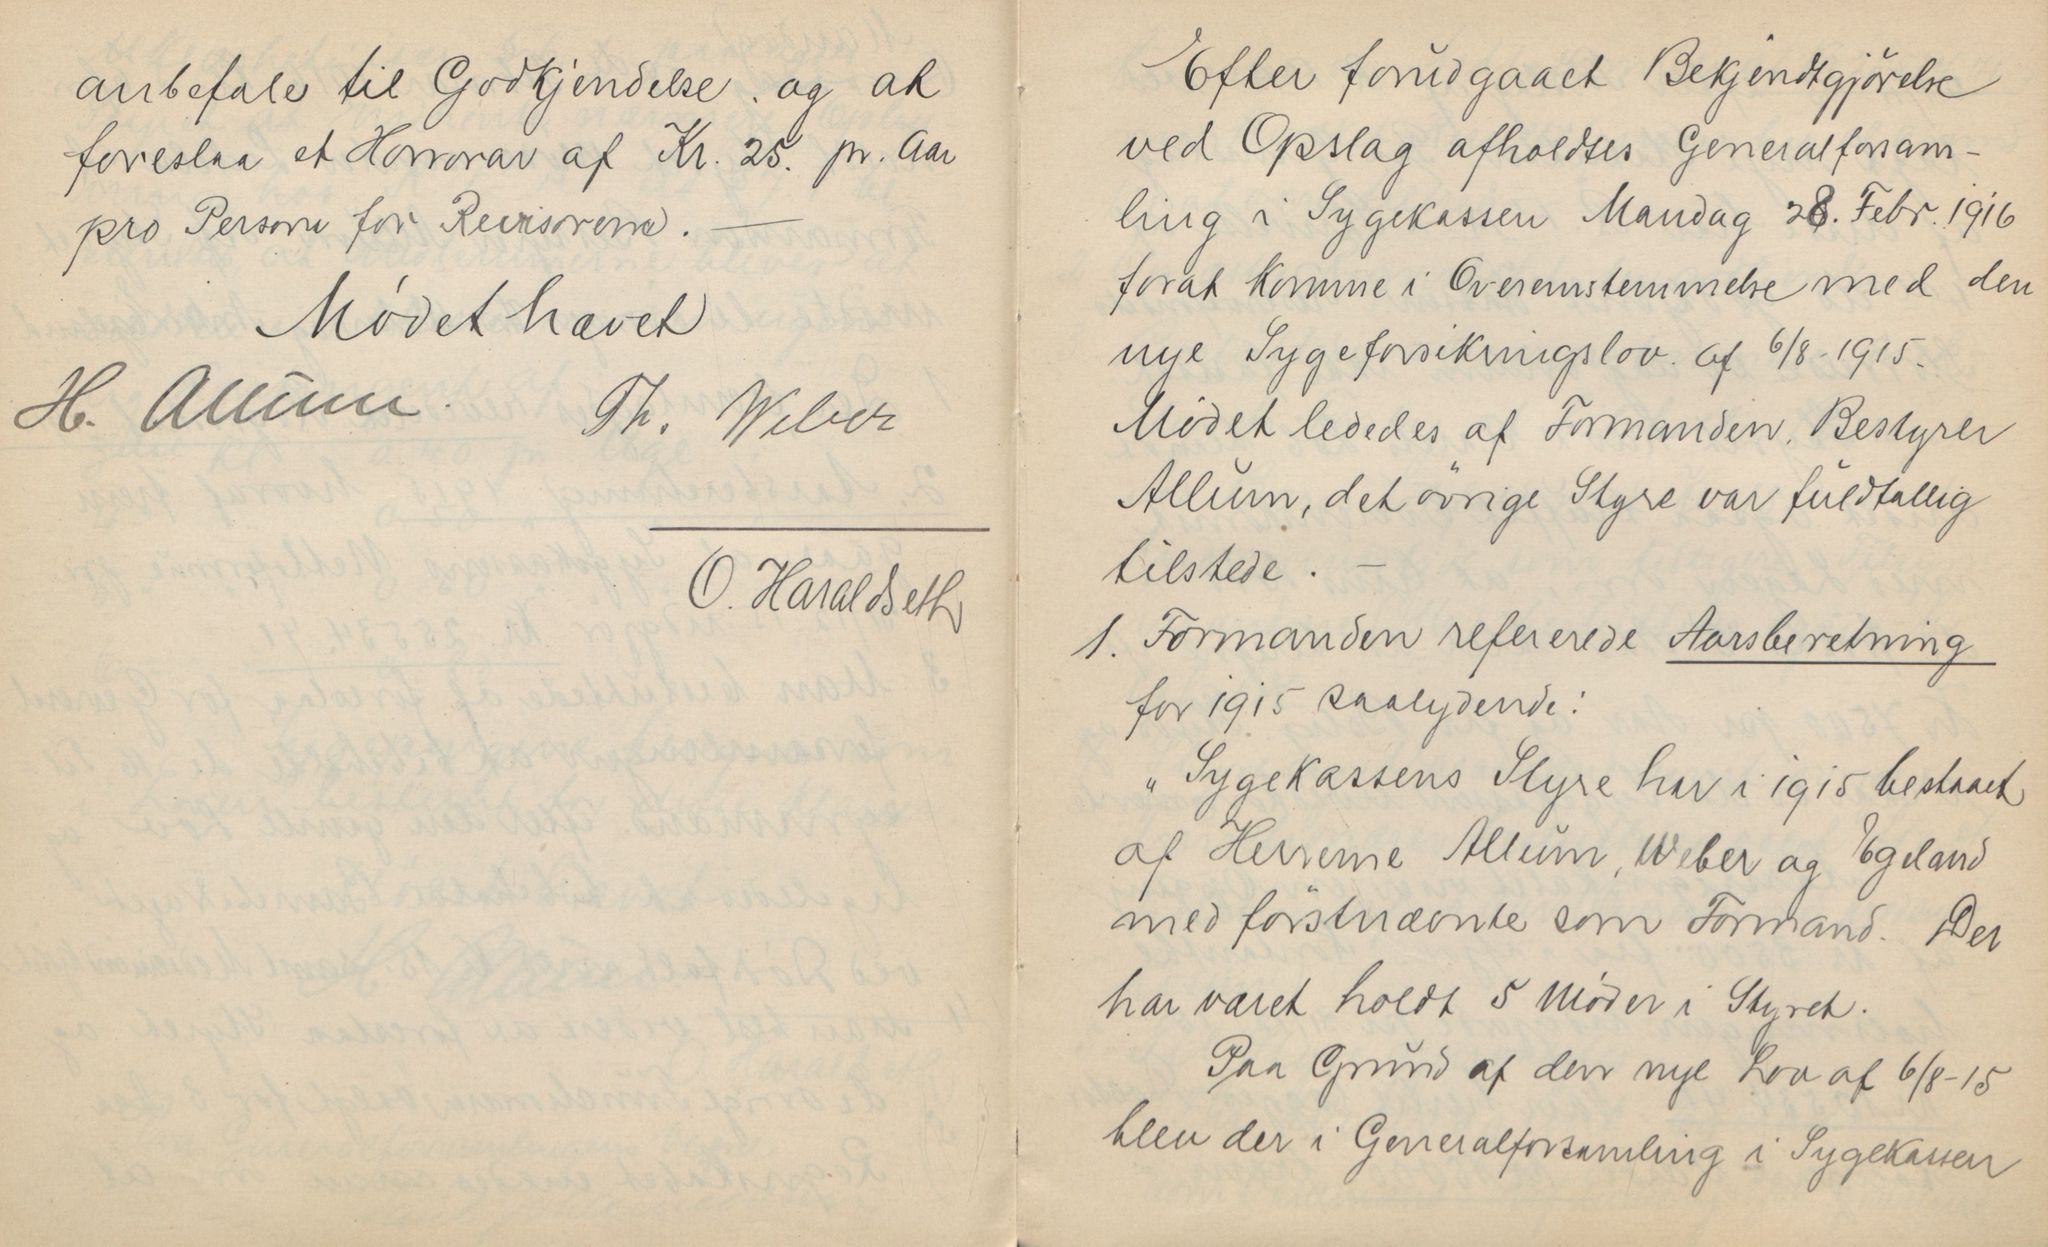 anbefale til Godkjendelse . og at
foreslaa et Honorar af Kr. 25. pr. Aar
pro Persone for Revisorerne. —
Mødet hævet
H. Allum. Th. Weber
O. Haraldseth
Efter forudgaaet Bekjendtgjörelse
ved Opslag afholdtes Generalforsam-
ling i Sygekassen Mandag 28. Febr. 1916
forat komme i Overensstemmelse med den
nye Sygeforsikringslov. af 6/8-1915.
Mödet lededes af Formanden, Bestyrer
Allum, det övrige Styre var fuldtallig
tilstede. —
1. Formanden refererede Aarsberetning
for 1915 saalydende:
„Sygekassens Styre har i 1915 bestaaet
af Herrerne Allum, Weber og Egeland
med förstnævnte som Formand. Der
har været holdt 5 Møder i Styret.
Paa Grund af den nye Lov af 6/8-15
blev der i Generalforsamling i Sygekassen